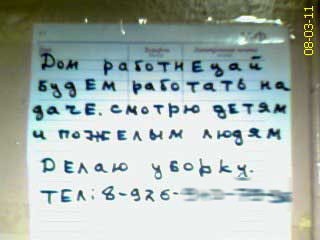 Дом работнецай
будем работать на
даче. смотрю детям
и пожелым людям
Делаю уборку.
тел: 8-926-
08-03-11